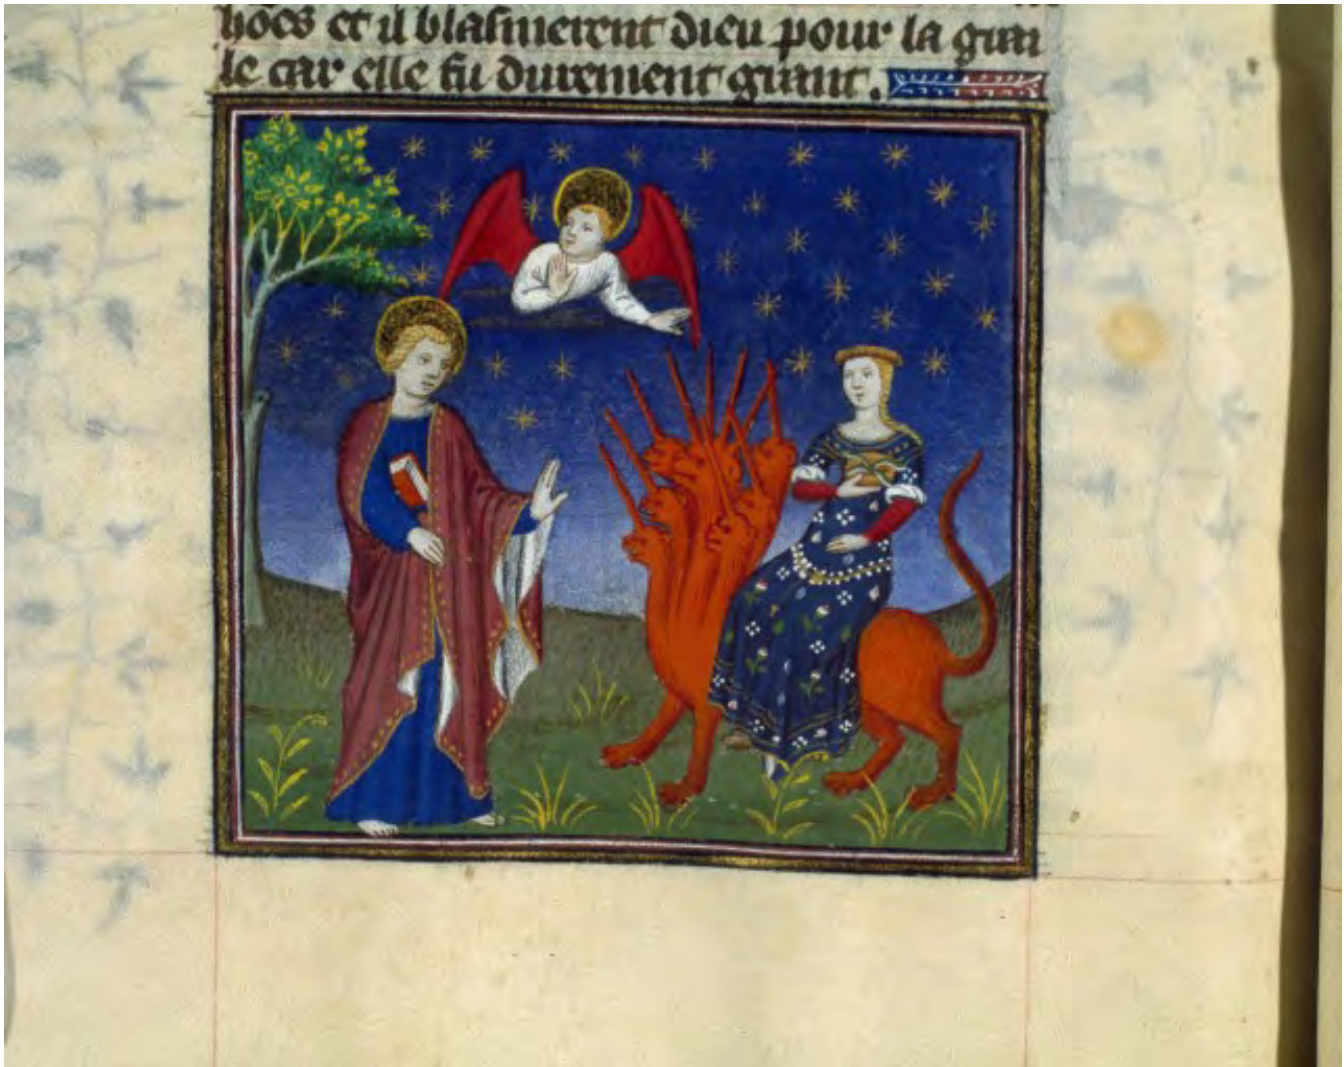 hões et il blasmerent dieu pour la grai
le car elle fu durement grant.